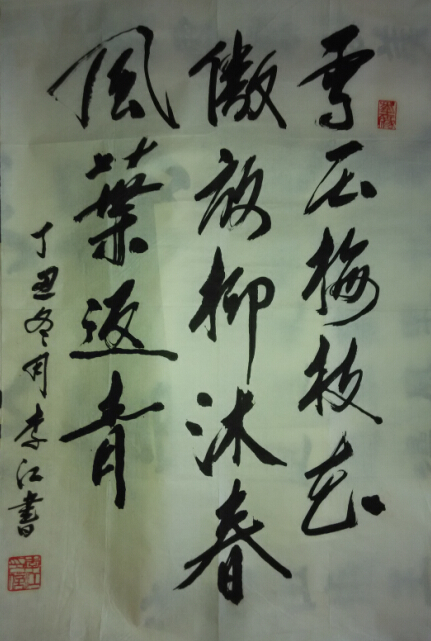 雪压梅枝花
傲放柳沐春
風葉返青
丁丑冬月李江書